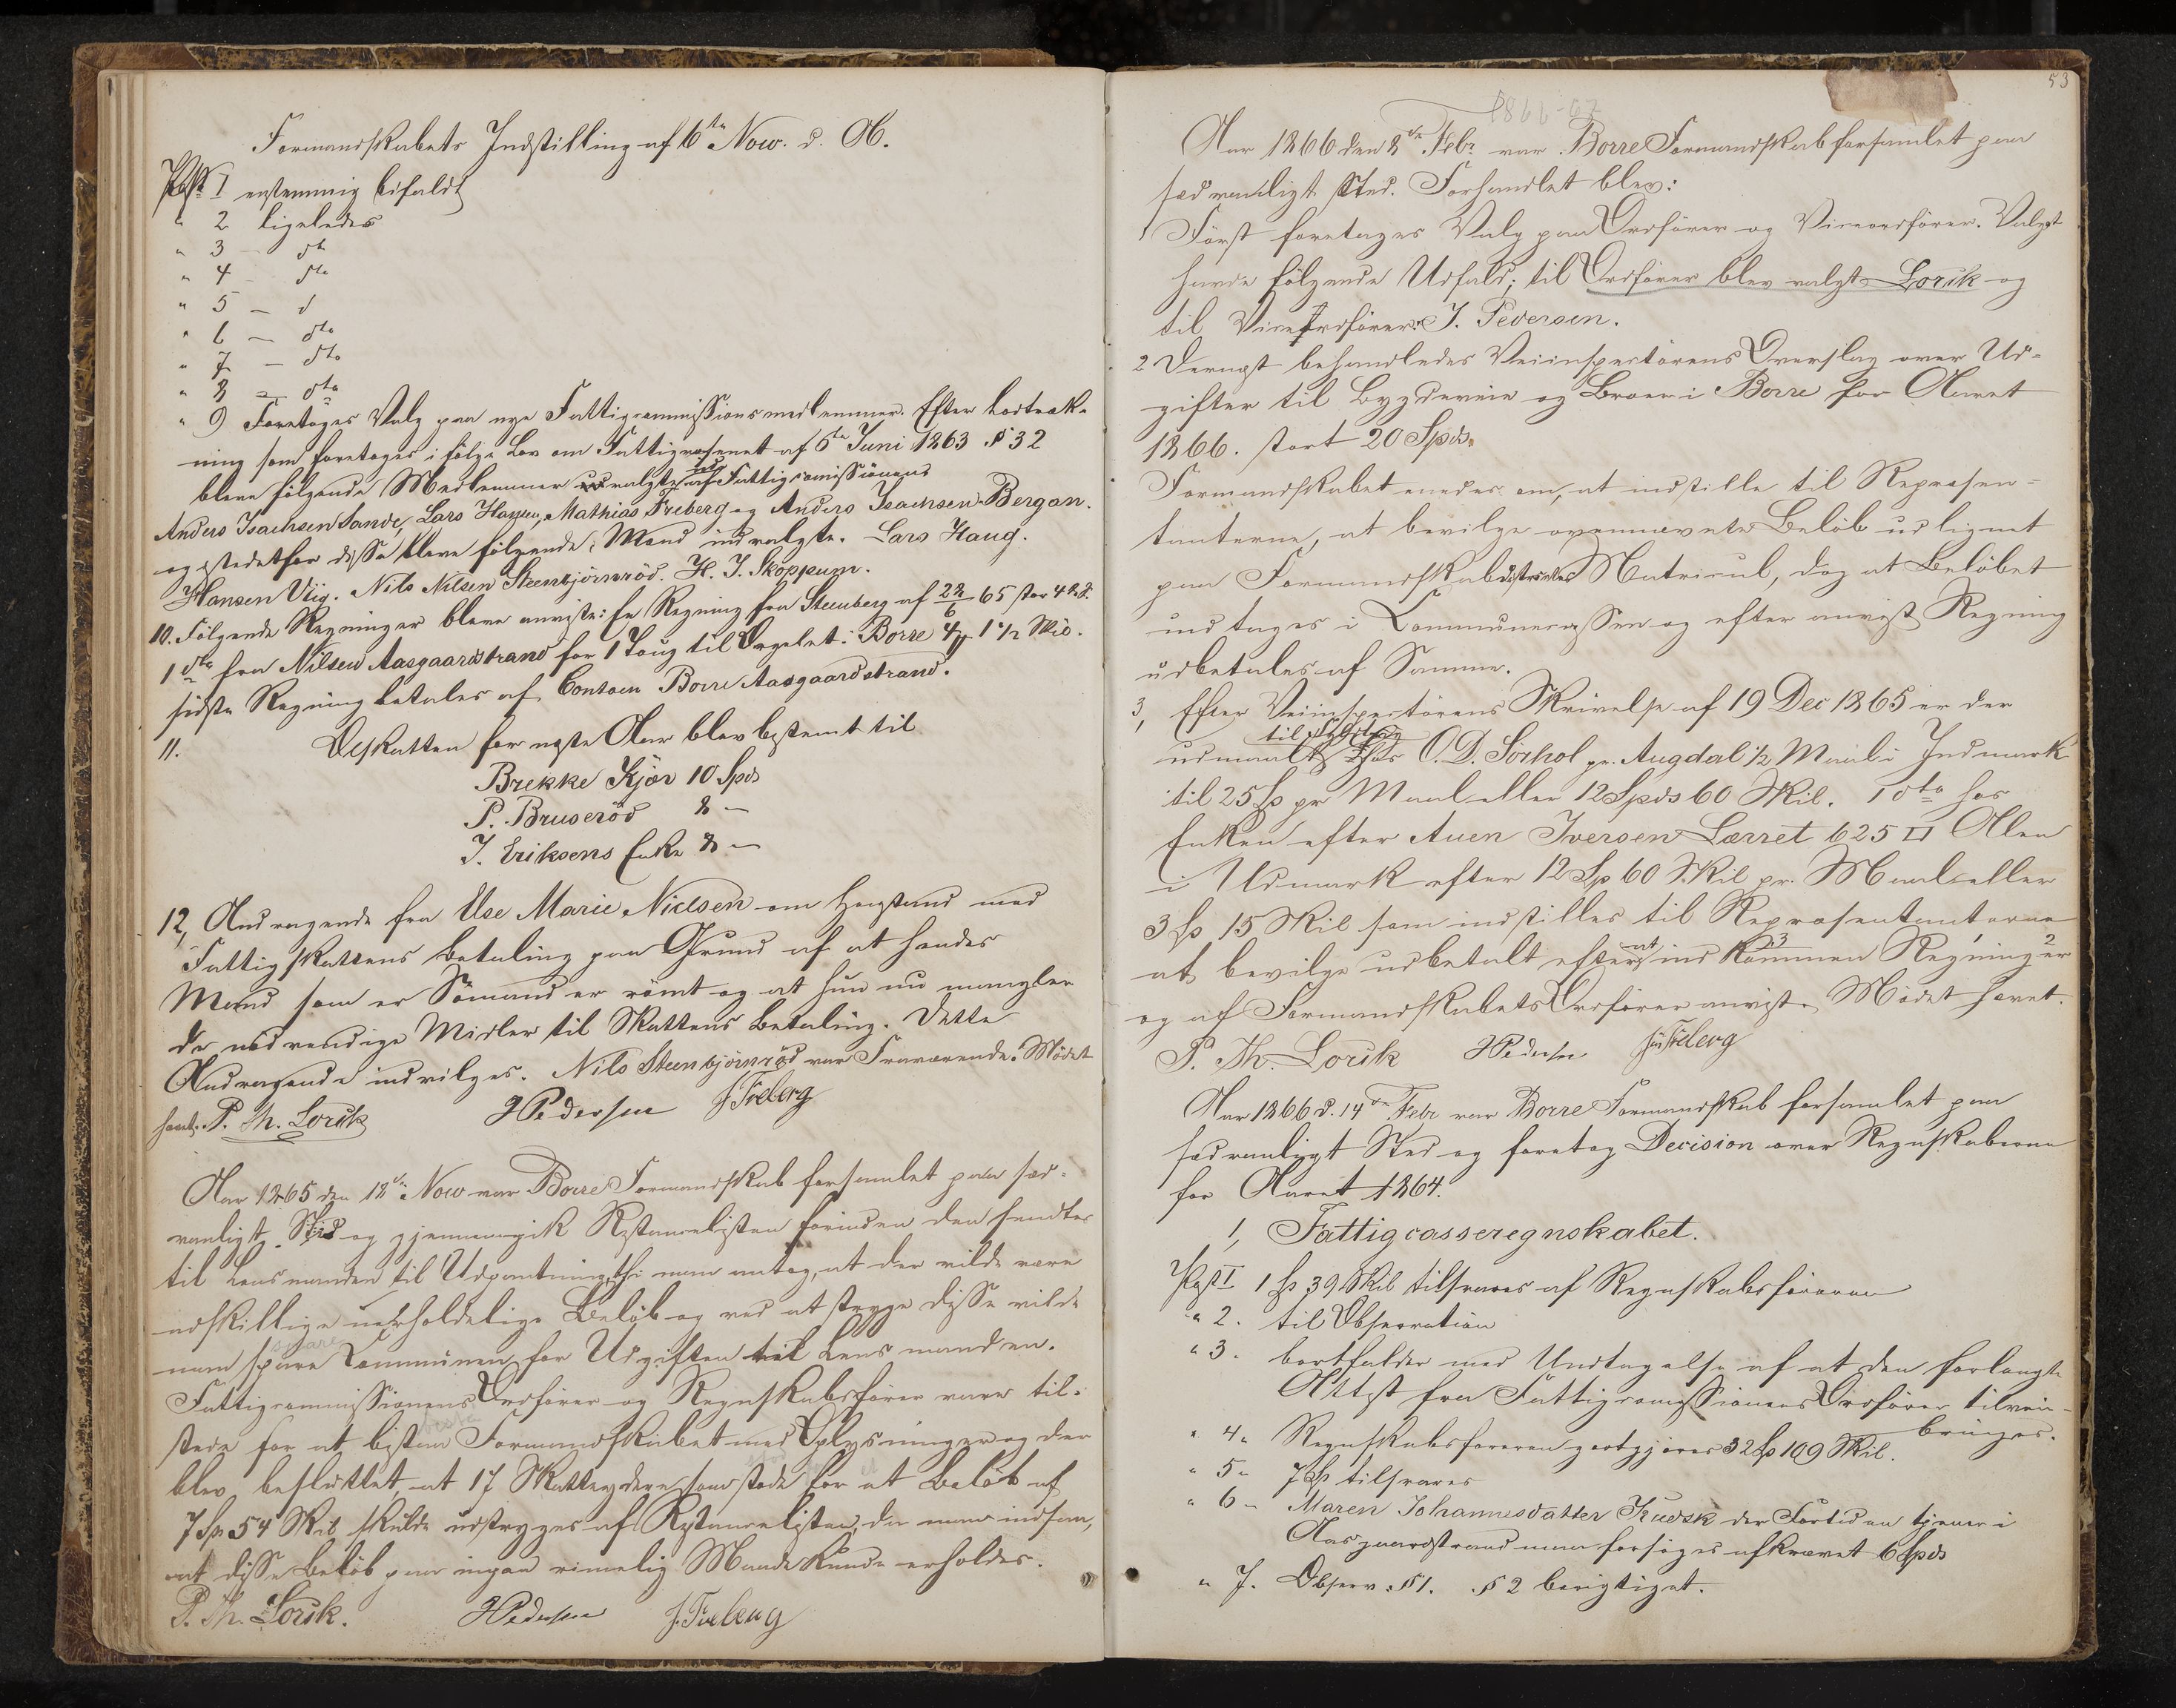 Formandskabets Indstilling af 6te Nov. d. A.
Post 1 enstemmig bifaldt
" 2 ligeledes
" 3 - dt
" 4 - dto
" 5 - d
" 6 - dto
" 7 - dto
" 8 - dto
" 9 Foretoges Valg paa nye Fattigcommissionsmedlemmer. Efter Lodtræk-
ning som foretoges i følge Lov om Fattigvæsenet af 6te Juni 1863 § 32
bleve følgende Medlemmer udvalgte af Fattigcomissionens
Anders Isachsen Sande, Lars Haugen, Mathias Freberg og Anders Isachsen Bergan.
og istedetfor disse bleve følgende Mænd indvalgte. Lars Haug.
Hansen Viig. Nils Nilsen Steenbjörnröd. H. J. Skoppum.
10. Følgende Regninger bleve anviste: En Regning fra Steenberg af 22/6 65 stor
1 dto fra Nilsen Aasgaardstrand for 1 Toug til Orgelet i Borre
sidste Regning betales af Contoen Borre Aasgaardstrand.
11. Ølskatten for næste Aar blev bestemt til
Brekke Kjær 10 Spd
P. Bruseröd 8 -
J. Eriksens Enke 8 -
12, Andragende fra Else Marie Nielsen om Henstand med
Fattigskattens Betaling paa Grund af at hendes
Mand som er Sömand er römt og at hun nu mangler
de nødvendige Midler til Skattens Betaling. Dette
Andragende indvilges. Nils Steenbjörnröd var Fraværende. Mödet
hævet. P. Th. Lorck HPedersen J. Freberg
Aar 1865 den 18de Nov var Borre Formandskab forsamlet paa sæd-
vanligt Sted og gjennemgik Restancelisten forinden den sendtes
til Lensmanden til Udpantning, thi man antog, at der vilde være
adskillige uerholdelige Beløb og ved at stryge disse vilde
man spare Communen for Udgiften til Lensmanden.
Fattigcommissionens Ordfører og Regnskabsfører vare til-
stede for at bistaa Formandskabet med Oplysninger og der
blev besluttet, at 17 Skatteydere som stode for et Beløb af
7 Sp 54 Skil skulde udstryges af Restancelisten, da man indsaa,
at disse Beløb paa ingen rimelig Maade kunde erholdes.
P. Th. Lorck. HPedersen J. Freberg
53
1866-67
Aar 1866 den 8de Febr. var Borre Formandskab forsamlet paa
sædvanligt Sted. Forhandlet blev:
1 Först foretoges Valg paa Ordfører og Viceordfører. Valget
havde følgende Udfald; til Ordfører blev valgt Lorck og
til Viceordfører J. Pedersen.
2 Dernæst behandledes Veiinspectörens Overslag over Ud-
gifter til Bygdeveie og Broer i Borre for Aaret
1866. stort 20 Spds.
Formandskabet enedes om, at indstille til Repræsen-
tanterne, at bevilge ovennævnte Beløb udlignet
paa Formandskabdistriktes Matricul, dog at Beløbet
indtages i Communecassen og efter anvist Regning
udbetales af Samme.
3, Efter Veiinspectörens Skrivelse af 19 Dec 1865 er der
til
udmaalt hos O. D. Sörhol pr. Augdal 1/2 Maal i Indmark
til 25 Sp pr Maal eller 12 Spds 60 Skil. 1 dto hos
Enken efter Auen Iversen Lærret 625 □ Alen
i Udmark efter 12 Sp 60 Skil pr. Maal eller
3 Sp 15 Skil som indstilles til Repræsentanterne
at bevilge udbetalt efter at indkommen Regninger
og af Formandskabets Ordfører anvist. Mödet hævet.
P. Th. Lorck HPedersen J. Freberg
Aar 1866 d. 14de Febr var Borre Formandskab forsamlet paa
sædvanligt Sted og foretog Decision over Regnskaberne
for Aaret 1864.
1, Fattigcasseregnskabet.
Post 1 1 Sp 39 Skil tilsvares af Regnskabsføreren
" 2. til Observation
" 3. bortfalder med Undtagelse af at den forlangte
Attest fra Fattigcomissionens Ordfører tilveie-
bringes.
" 4 " Regnskabsføreren godtgjøres 32 Sp 109 Skil.
" 5 " 7 Sp tilsvares
" 6 " Maren Johannesdatter Kudsk der Fortiden tjener i
Aasgaardstrand maa forsøges afkrævet 6 Spds
" 7. Observ. § 1. § 2 berigtiget.